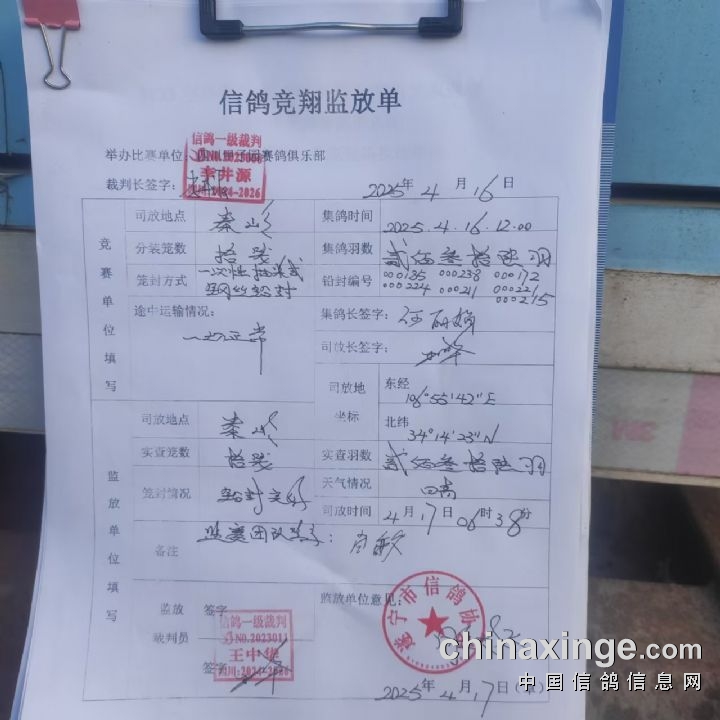 信鸽竞翔监放单
信鸽一级裁判
举办比赛单位:
赛鸽俱乐部
李井源
2024-2026
裁判长签字:
2025年4月16日
竞赛单位填写
司放地点 秦岭 集鸽时间 2025.4.16.12.00
分装笼数 拾 集鸽羽数 贰佰叁拾 羽
笼封方式 一次性 铅封 铅封编号 000135 000238 000172
000224 000211 000221
000215
途中运输情况: 一切正常 集鸽长签字:
司放长签字:
司放地坐标 东经 106°55'42"E
北纬 34°14'23"N
监放单位填写
司放地点 秦岭
实查笼数 拾 实查羽数 贰佰叁拾 羽
笼封情况 铅封完好 天气情况
司放时间 4月17日06时38分
备注 监赛团队签字:
监放裁判员 签字 监放单位意见:
信鸽一级裁判
NO.2023011
王中华
四川:2024-2026
签字
遂宁市信鸽协
2025年4月17日
chinaxinge.com
中国信鸽信息网